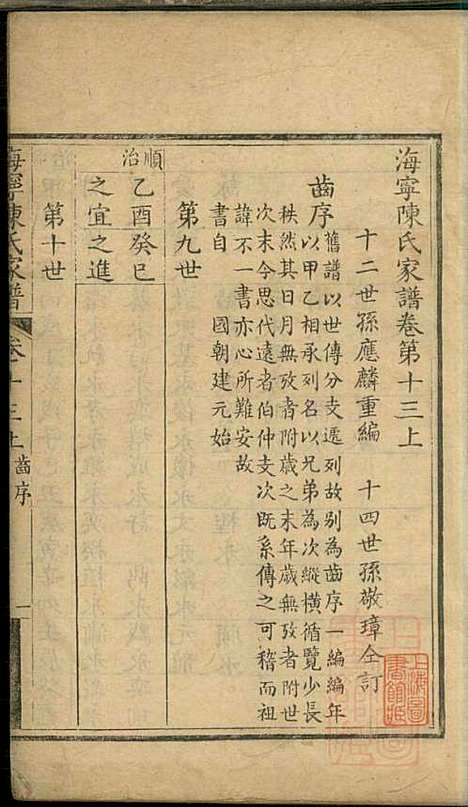 海寧陳氏家譜卷第十三上
十二世孫應麟重編　十四世孫敬璋仝訂
齒序
舊譜以世傳分支遞列故别為齒序一編編年
以甲乙相承列名以兄弟為次縱橫循覽少長
秩然其日月無攷者附歲之末年歲無攷者附世
次末今思代遠者伯仲支次既系傳之可稽而祖
諱不一書亦心所難安故
書自　國朝建元始
第九世
順治
乙酉癸巳
之宜之進
第十世
海寧陳氏家譜　卷十三上　齒序　一
上海圖書館藏